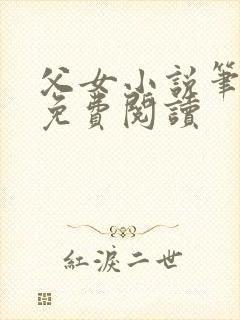 父女小說筆
免費閱讀
紅淚二世